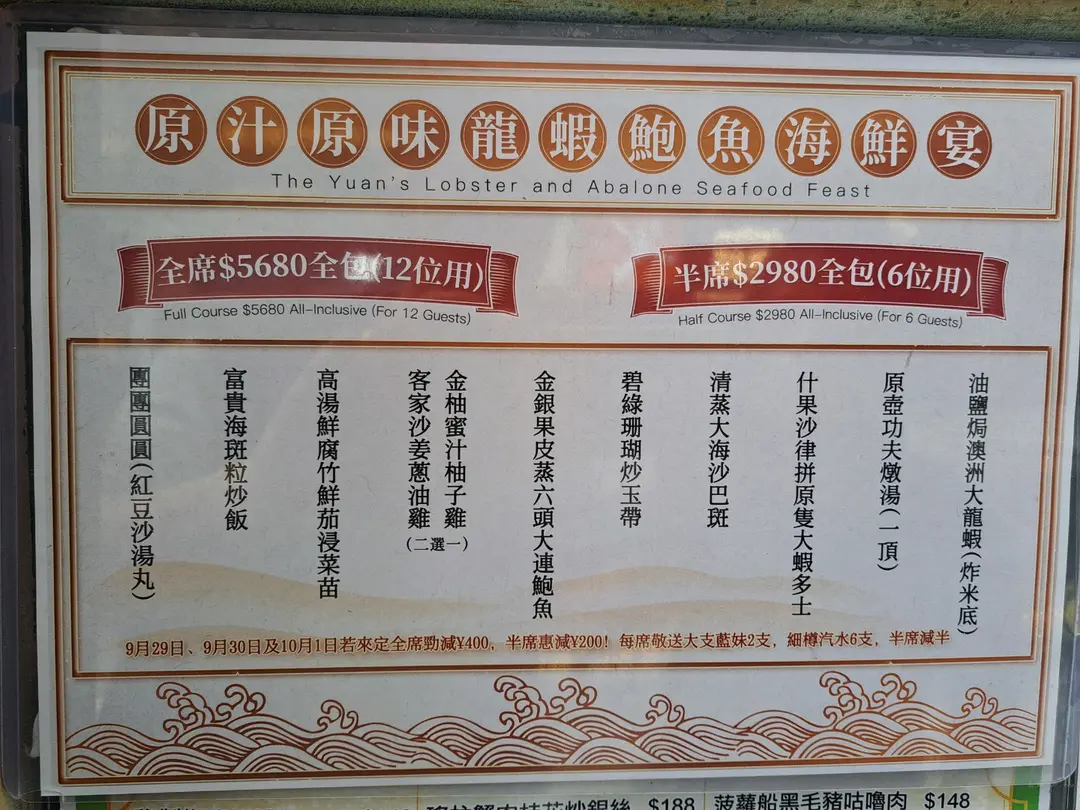 原汁原味龍蝦鮑魚海鮮宴
The Yuan's Lobster and Abalone Seafood Feast
全席$5680全包(12位用)
Full Course $5680 All-Inclusive (For 12 Guests)
半席$2980全包(6位用)
Half Course $2980 All-Inclusive (For 6 Guests)
油鹽焗澳洲大龍蝦(炸米底)
原壺功夫燉湯(一頂)
什果沙律拼原隻大蝦多士
清蒸大海沙巴斑
碧綠珊瑚炒玉帶
金銀果皮蒸六頭大連鮑魚
金柚蜜汁柚子雞
客家沙姜蔥油雞
(二選一)
高湯鮮腐竹鮮茄浸菜苗
富貴海斑粒炒飯
團團圓圓(紅豆沙湯丸)
9月29日、9月30日及10月1日若來定全席勁減¥400，半席惠減¥200! 每席敬送大支藍妹2支，細樽汽水6支，半席減半
$188
菠蘿船黑毛豬咕嚕肉 $148